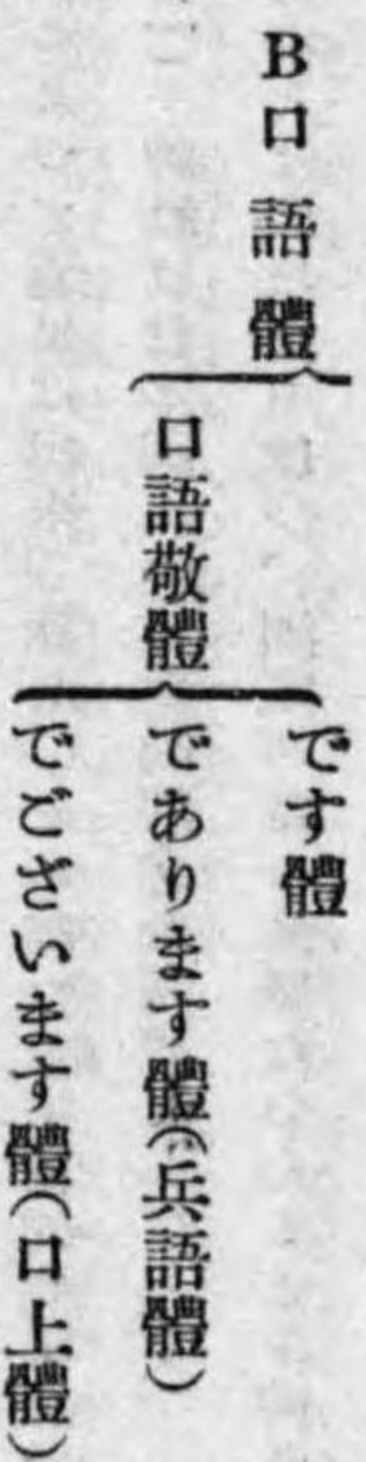 B口語體
口語敬體
です體
であります體(兵語體)
でございます體(口上體)